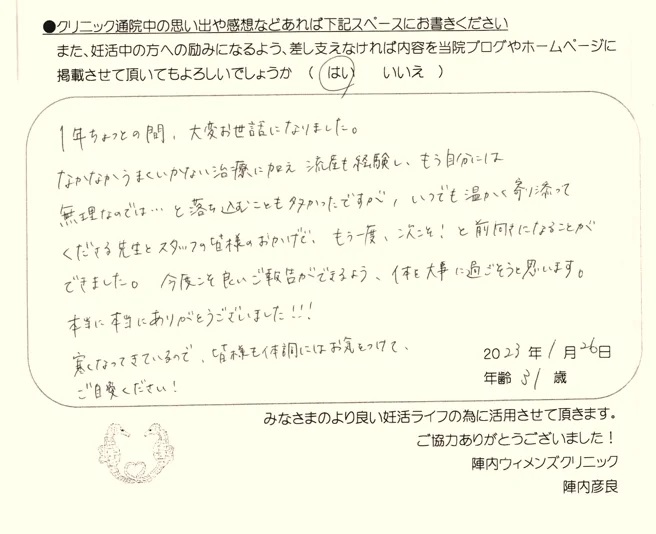 ●クリニック通院中の思い出や感想などあれば下記スペースにお書きください
また、妊活中の方への励みになるよう、差し支えなければ内容を当院ブログやホームページに
掲載させて頂いてもよろしいでしょうか （ はい　いいえ ）
1年ちょっとの間、大変お世話になりました。
なかなかうまくいかない治療に加え 流産も経験し、もう自分には
無理なのでは… と落ち込むことも多かったですが、いつでも温かく寄り添って
くださる先生とスタッフの皆様のおかげで、もう一度、次こそ！と前向きになることが
できました。 今度こそ良いご報告ができるよう、体を大事に過ごそうと思います。
本当に本当にありがとうございました!!!
寒くなってきているので、皆様も体調にはお気をつけて、
ご自愛ください！
2023年 1月26日
年齢 31 歳
みなさまのより良い妊活ライフの為に活用させて頂きます。
ご協力ありがとうございました！
陣内ウィメンズクリニック
陣内彦良